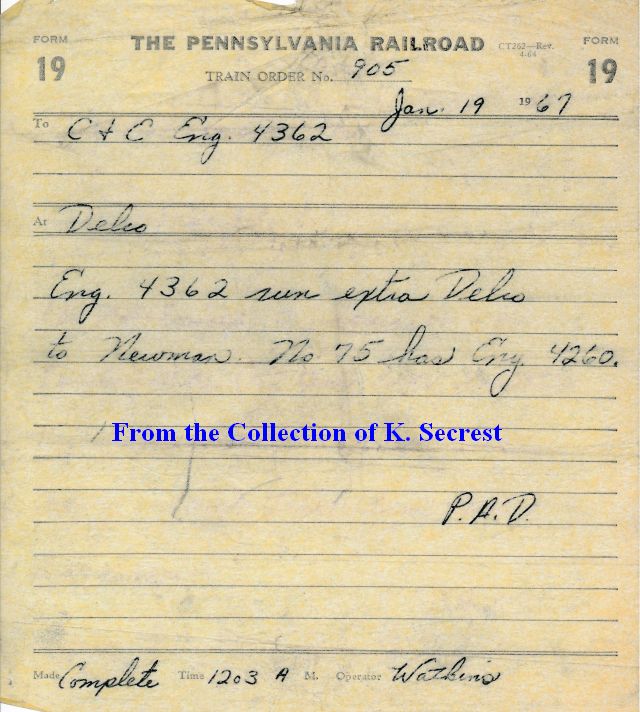 FORM 19
THE PENNSYLVANIA RAILROAD
CT262—Rev. 4-64
FORM 19
TRAIN ORDER No. 905
Jan. 19 1967
To C & C Eng. 4362
At Delco
Eng. 4362 run extra Delco
to Newman. No 75 has Eng. 4260.
From the Collection of K. Secrest
P.A.D.
Made Complete Time 1203 A M. Operator Watkins